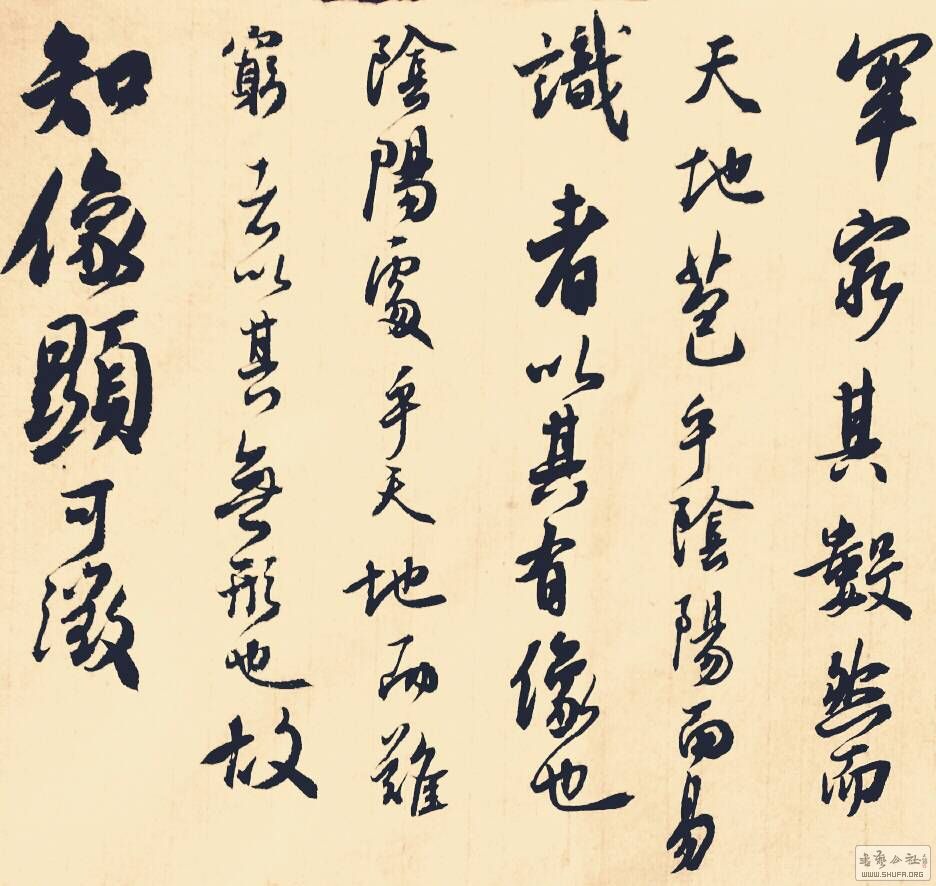 罕窮其數然而
天地苞乎陰陽而易
識者以其有像也
陰陽處乎天地而難
窮者以其無形也故
知像顯可徵
書藝公社
WWW.SHUFA.ORG